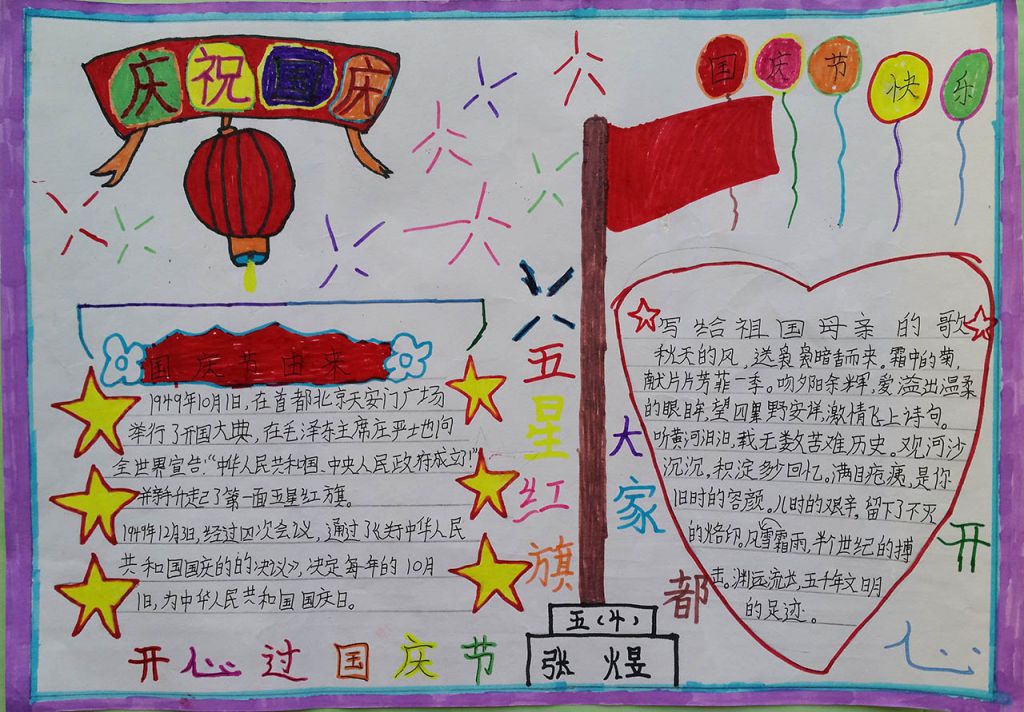 庆祝国庆
国庆节快乐
国庆节由来
1949年10月1日，在首都北京天安门广场
举行了开国大典，在毛泽东主席庄严地向
全世界宣告：“中华人民共和国、中央人民政府成立！”
并亲手升起了第一面五星红旗。
1949年12月3日，经过四次会议，通过了《关于中华人民
共和国国庆的的决议》，决定每年的10月
1日，为中华人民共和国国庆日。
写给祖国母亲的歌
秋天的风，送袅袅暗香而来。霜中的菊，
献片片芳菲一季。吻夕阳余晖，爱溢出温柔
的眼眸，望四野安详，激情飞上诗句。
听黄河汩汩，载无数苦难历史。观河沙
沉沉，积淀多少回忆。满目疮痍，是你
旧时的容颜。儿时的艰辛，留下了不灭
的烙印。风雪霜雨，半个世纪的搏
击。渊远流长，五十年文明
的足迹。
五星红旗
大家都开心
开心过国庆节
五（4）
张煜